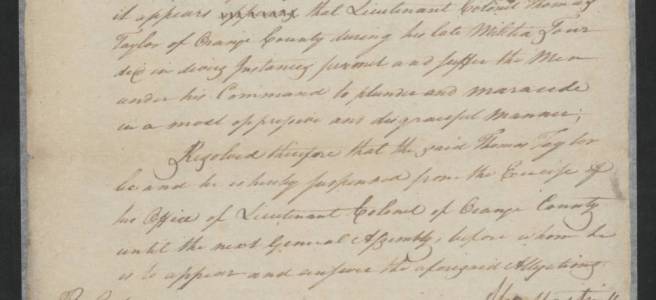 it appears appears that Lieutenant Colonel Thomas
Taylor of Orange County during his late Militia Tour
did in divers Instances permit and suffer the Men
under his Command to plunder and maraude
in a most oppressive and disgraceful manner;
Resolved therefore that the said Thomas Taylor
be and he is hereby suspended from the Exercise of
his Office of Lieutenant Colonel of Orange County
until the next General Assembly, before whom he
is to appear and answer the aforesaid Allegations